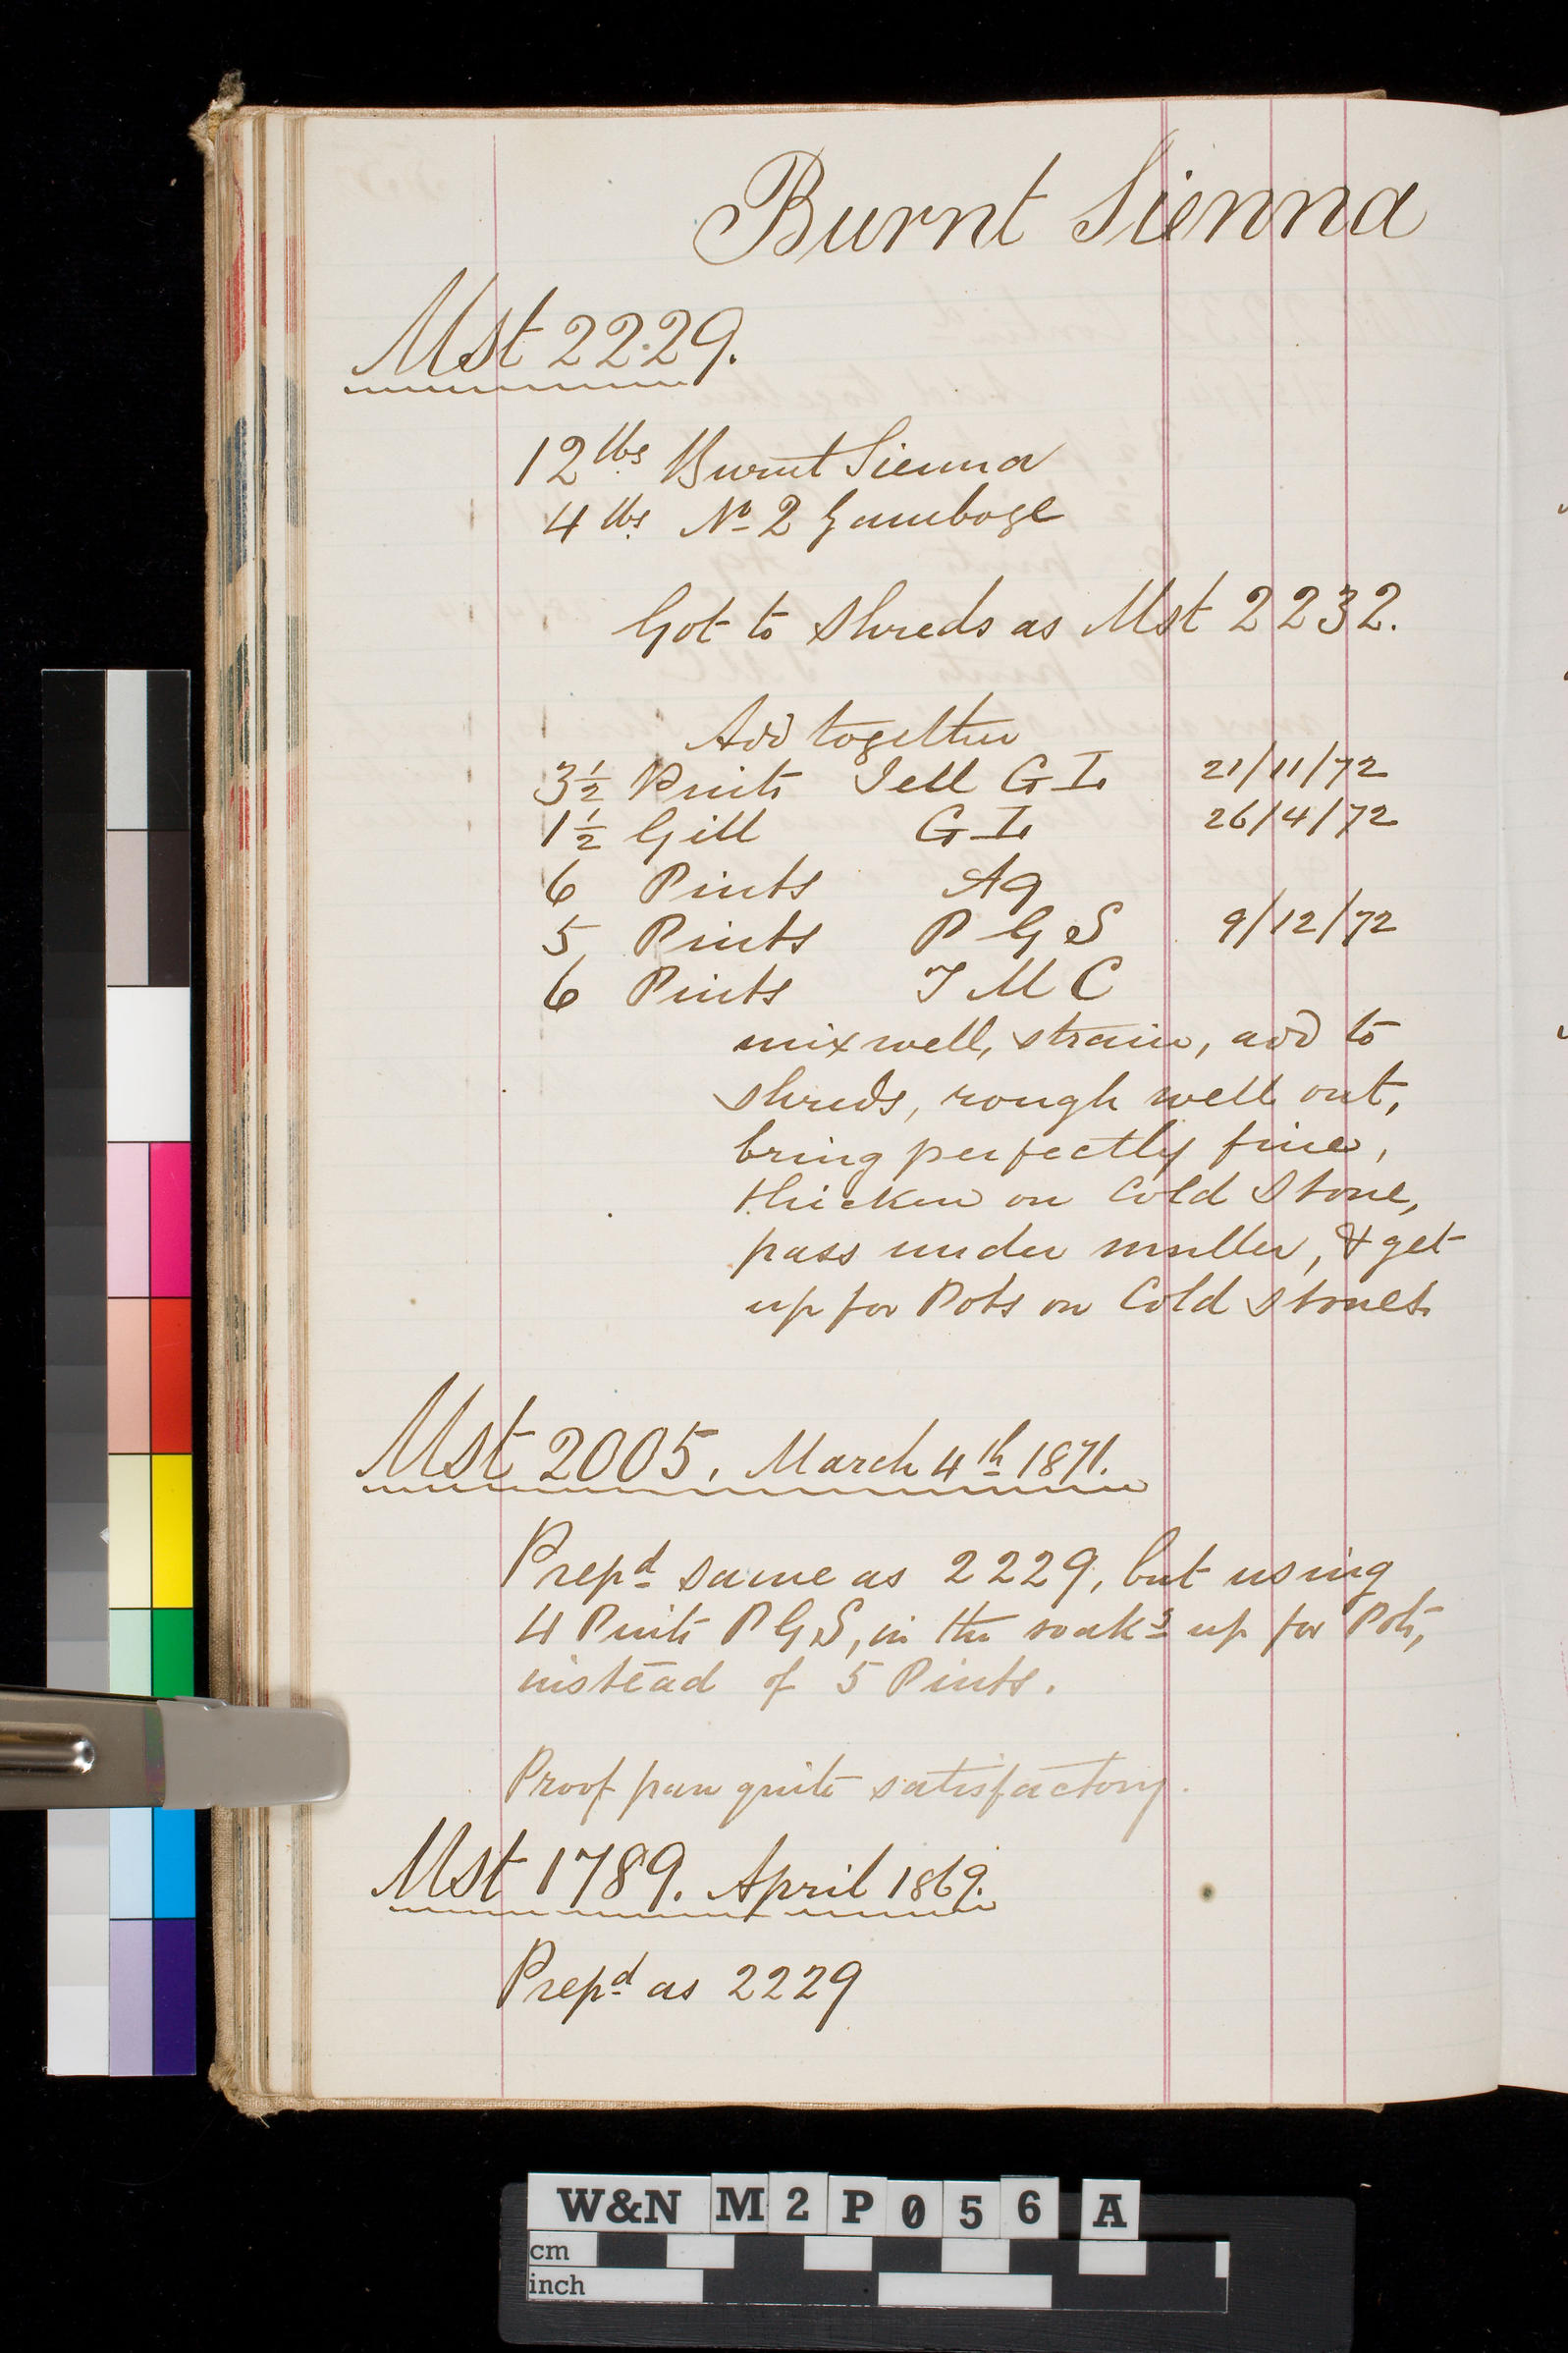 Burnt Sienna
Mst 2229.
12 lbs Burnt Sienna
4 lbs No 2 Gamboge
Got to Shreds as Mst 2232.
Add together
3½ Pints Jell G I. 21/11/72
1½ Gill G I. 26/4/72
6 Pints Aq
5 Pints P G S 9/12/72
6 Pints T M C
mix well, strain, add to
shreds, rough well out,
bring perfectly fine,
thicken on Cold Stone,
pass under muller, & get
up for Pots on Cold Stones.
Mst 2005. March 4th 1871.
Prepd same as 2229, but using
4 Pints P G S, in the soakg up for Pots,
instead of 5 Pints.
Proof pan quite satisfactory.
Mst 1789. April 1869.
Prepd as 2229
W&N M2P056 A
cm
inch